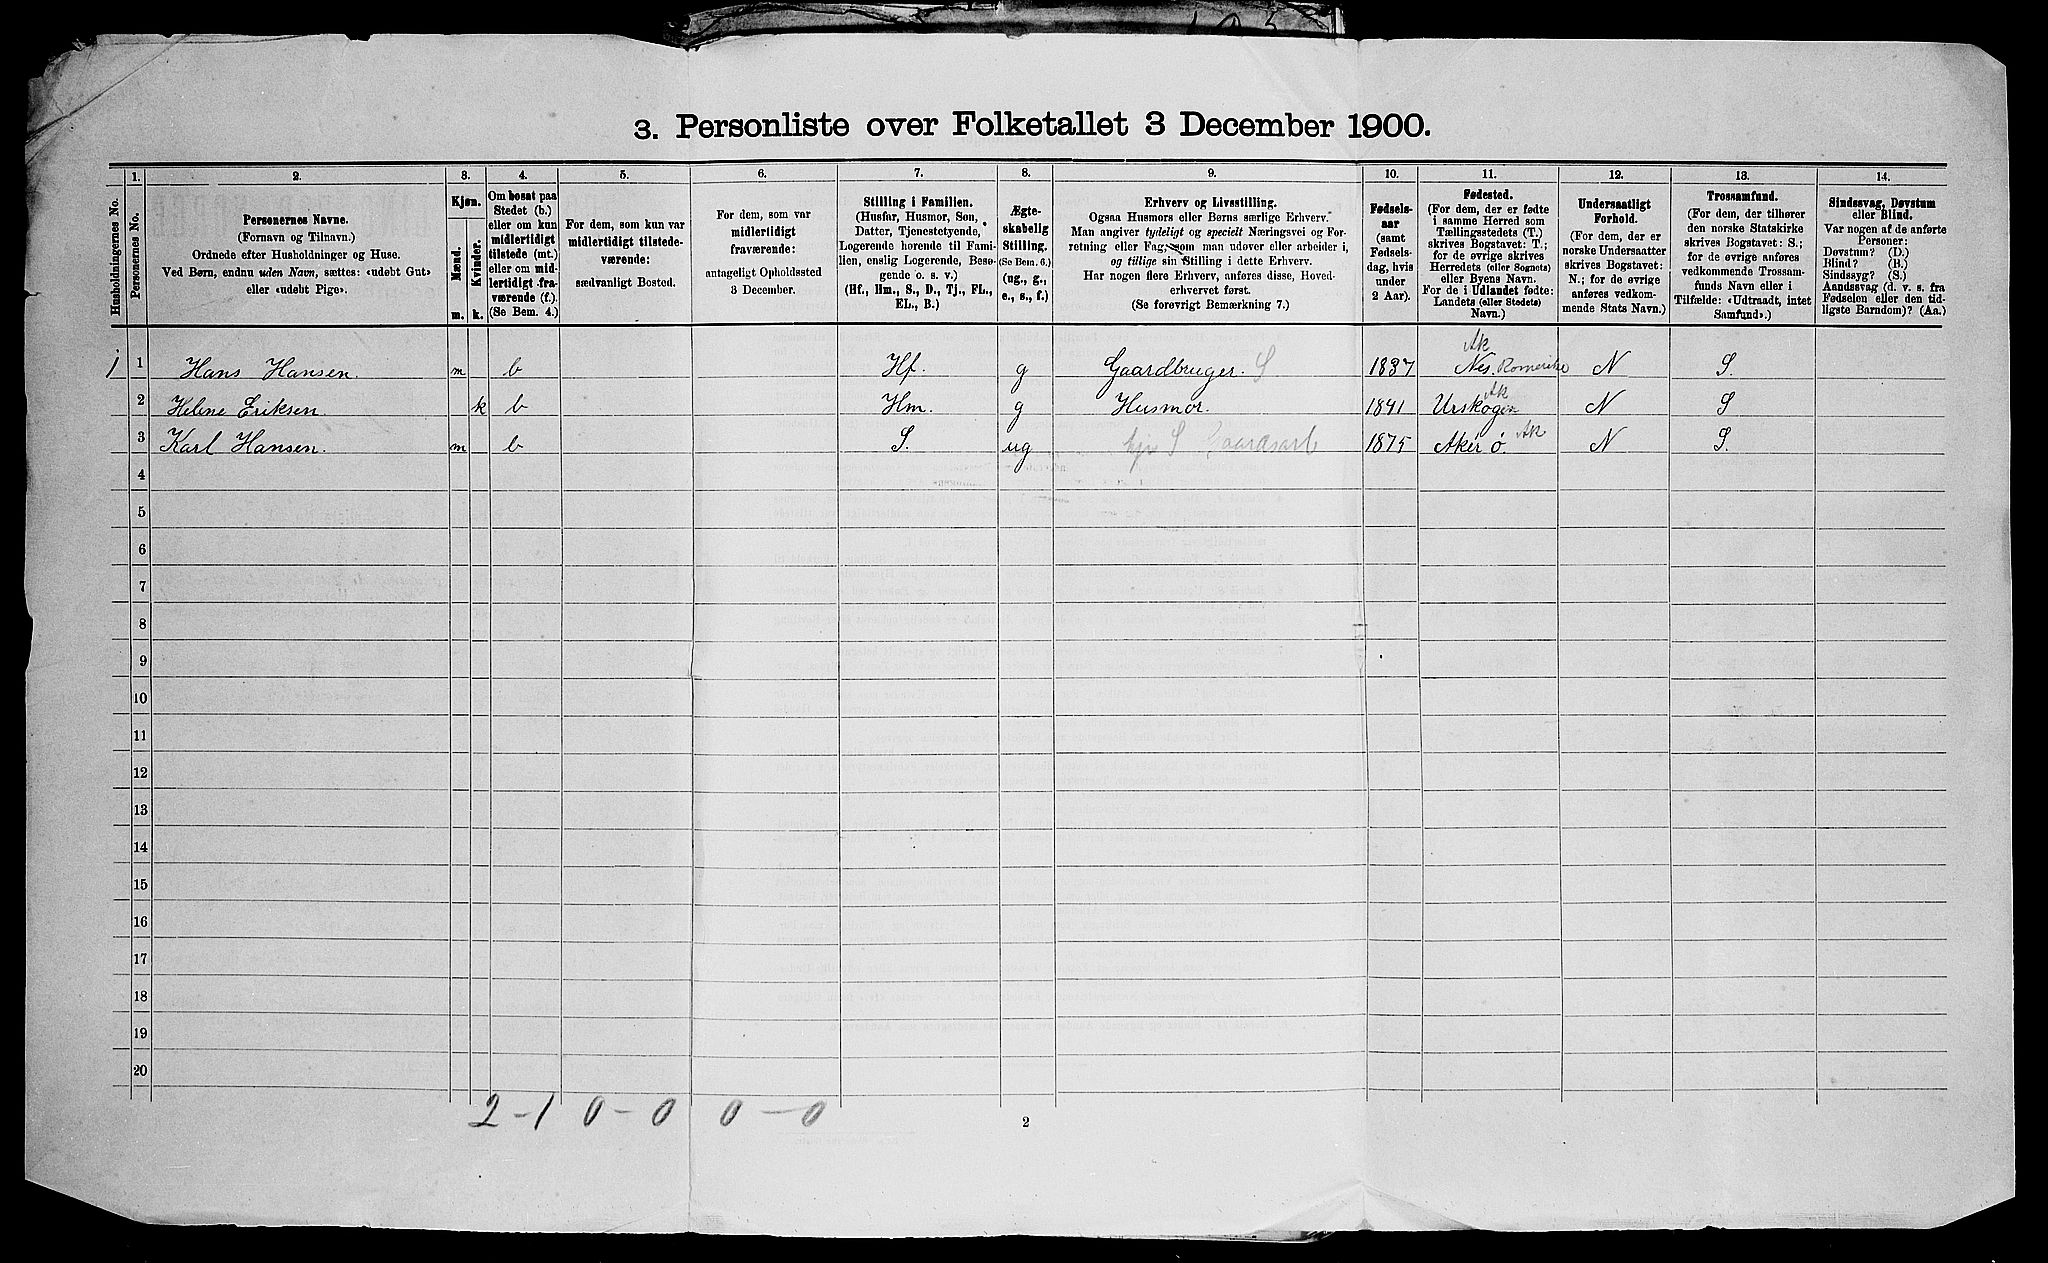 3. Personliste over Folketallet 3 December 1900.
Husholdningernes No.
1.
Personernes No.
2.
Personernes Navne.
(Fornavn og Tilnavn.)
Ordnede efter Husholdninger og Huse.
Ved Børn, endnu uden Navn, sættes: «udøbt Gut»
eller «udøbt Pige».
3.
Kjøn.
Mænd.
Kvinder.
m.
k.
4.
Om bosat paa
Stedet (b.)
eller om kun
midlertidigt
tilstede (mt.)
eller om mid-
lertidigt fra-
værende (f.)
(Se Bem. 4.)
5.
For dem, som kun var
midlertidigt tilstede-
værende:
sædvanligt Bosted.
6.
For dem, som var
midlertidigt
fraværende:
antageligt Opholdssted
3 December.
7.
Stilling i Familien.
(Husfar, Husmor, Søn,
Datter, Tjenestetyende,
Logerende hørende til Fami-
lien, enslig Logerende, Besø-
gende o. s. v.)
(Hf., Hm., S., D., Tj., FL.,
EL., B.)
8.
Ægte-
skabelig
Stilling.
(Se Bem. 6.)
(ug., g.,
e., s., f.)
9.
Erhverv og Livsstilling.
Ogsaa Husmors eller Børns særlige Erhverv.
Man angiver tydeligt og specielt Næringsvei og For-
retning eller Fag, som man udøver eller arbeider i,
og tillige sin Stilling i dette Erhverv.
Har nogen flere Erhverv, anføres disse, Hoved-
erhvervet først.
(Se forøvrigt Bemærkning 7.)
10.
Fødsels-
aar
(samt
Fødsels-
dag, hvis
under
2 Aar).
11.
Fødested.
(For dem, der er fødte
i samme Herred som
Tællingsstedets (T.)
skrives Bogstavet: T.;
for de øvrige skrives
Herredets (eller Sognets)
eller Byens Navn.
For de i Udlandet fødte:
Landets (eller Stedets)
Navn.)
12.
Undersaatligt
Forhold.
(For dem, der er
norske Undersaatter
skrives Bogstavet:
N.; for de øvrige
anføres vedkom-
mende Stats Navn.)
13.
Trossamfund.
(For dem, der tilhører
den norske Statskirke
skrives Bogstavet: S.;
for de øvrige anføres
vedkommende Trossam-
funds Navn eller i
Tilfælde: «Udtraadt, intet
Samfund».)
14.
Sindssvag, Døvstum
eller Blind.
Var nogen af de anførte
Personer:
Døvstum? (D.)
Blind? (B.)
Sindssyg? (S.)
Aandssvag (d. v. s. fra
Fødselen eller den tid-
ligste Barndom)? (Aa.)
Ak
1 1 Hans Hansen. m b Hf. g Gaardbruger. S 1837 Nes. Romerike N S.
Ak
2 Helene Eriksen. k b Hm. g Husmor. 1841 Urskogen N S
3 Karl Hansen. m b S. ug S Gaardsarb 1875 Aker ø. Ak N S.
4
5
6
7
8
9
10
11
12
13
14
15
16
17
18
19
20
2-1 0-0 0-0
2